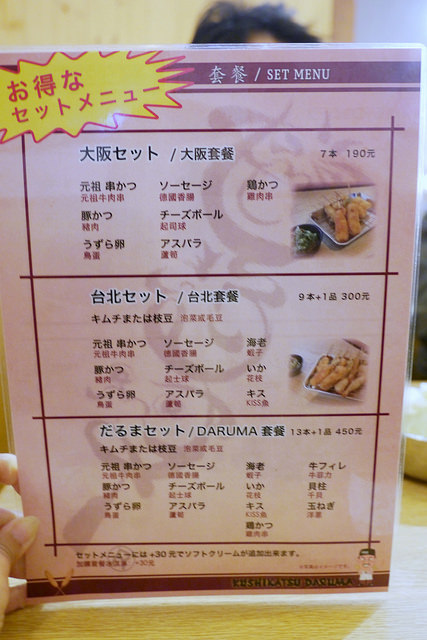 お得な
セットメニュー
套餐 / SET MENU
大阪セット / 大阪套餐 7本 190元
元祖 串かつ ソーセージ 鶏かつ
元祖牛肉串 德國香腸 雞肉串
豚かつ チーズボール
豬肉 起司球
うずら卵 アスパラ
鳥蛋 蘆筍
台北セット / 台北套餐 9本+1品 300元
キムチまたは枝豆 泡菜或毛豆
元祖 串かつ ソーセージ 海老
元祖牛肉串 德國香腸 蝦子
豚かつ チーズボール いか
豬肉 起士球 花枝
うずら卵 アスパラ キス
鳥蛋 蘆筍 KISS魚
だるまセット / DARUMA 套餐 13本+1品 450元
キムチまたは枝豆 泡菜或毛豆
元祖 串かつ ソーセージ 海老 牛フィレ
元祖牛肉串 德國香腸 蝦子 牛菲力
豚かつ チーズボール いか 貝柱
豬肉 起士球 花枝 干貝
うずら卵 アスパラ キス 玉ねぎ
鳥蛋 蘆筍 KISS魚 洋蔥
鶏かつ
雞肉串
セットメニューには +30 元でソフトクリームが追加出来ます。
加購套餐冰淇淋 +30元
KUSHIKATSU DARUMA